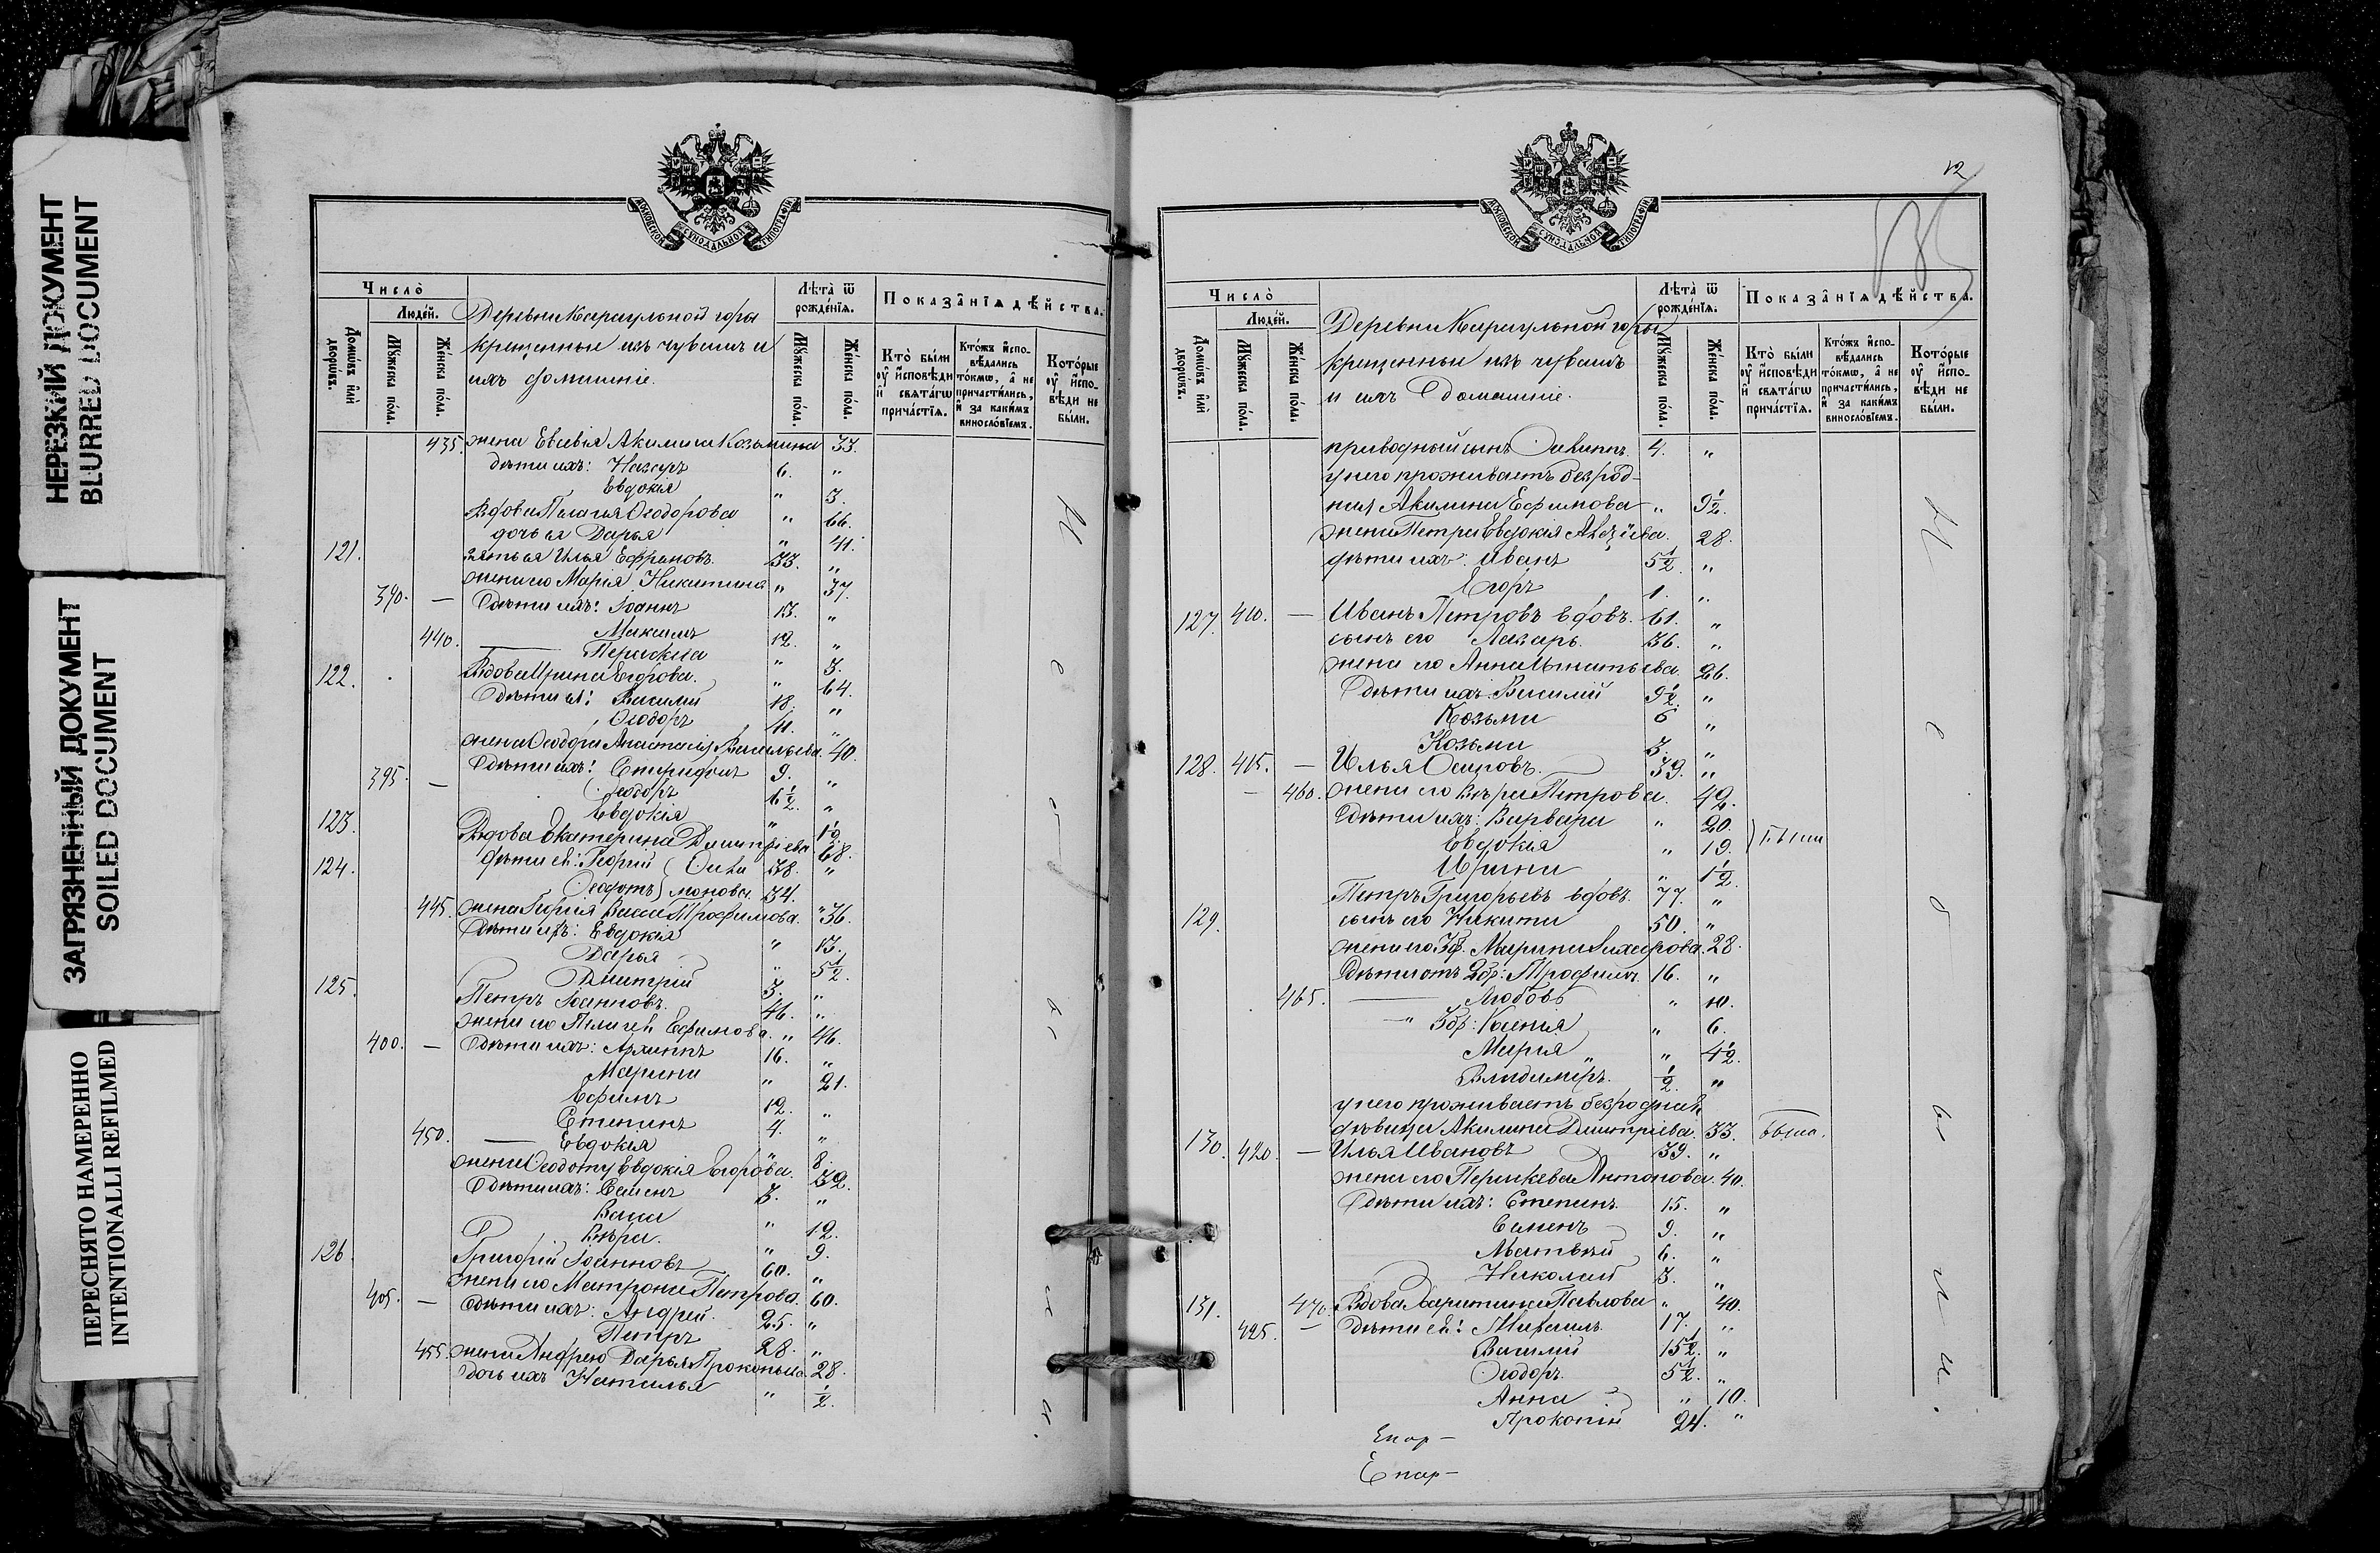 НЕРЕЗКИЙ ДОКУМЕНТ
BLURRED DOCUMENT
ЗАГРЯЗНЕННЫЙ ДОКУМЕНТ
SOILED DOCUMENT
ПЕРЕСНЯТО НАМЕРЕННО
INTENTIONALLI REFILMED
МОСКОВСКОЙ СѴНОДАЛЬНОЙ ТИПОГРАФІИ
Число̀
Людéй.
Домѡ́въ и҆лѝ дворѡ́въ.
Мꙋ́жеска по́ла.
Же́нска по́ла.
Деревни Караульной горы
крещенные изъ чувашъ и
ихъ домашніе.
Лѣ́та ѿ рожде́нїѧ.
Мꙋ́жеска по́ла.
Же́нска по́ла.
Показа̂нїѧ дѣ́йства.
Кто̀ бы́ли оу҆ и҆сповѣди и҆ свѧта́гѡ прича́стїѧ.
Кто́жъ и҆спо-вѣдались то́кмѡ, а҆ не причасти́лись, и҆ за каки́мъ винослові́емъ.
Кото́рые оу҆ и҆спо-вѣди не бы́ли.
435. жена Евсевія Акилина Козьмина 33.
дѣти ихъ: Назаръ 6. "
Евдокія " 3.
Вдова Пелагія Ѳеодорова " 66.
дочь ея Дарья " 41.
121. зять ея Илья Ефремовъ. 33. "
жена его Марія Никитина " 37.
390. — Дѣти ихъ: Іоаннъ 13. "
Максимъ 12. "
440. — Параскева " 3.
122. Вдова Ирина Егорова. " 64.
Дѣти ея: Василій 18. "
Ѳеодоръ 41. "
жена Ѳеодора Анастасія Васильева. 40.
Дѣти ихъ: Спиридонъ 9. "
395. — Ѳеодоръ 6½. "
Евдокія " ½
123. Вдова Екатерина Димитріева 68.
124. дѣти ея: Георгій 38. "
Ѳеодотъ 34.
445. жена Георгія Васса Трофимова. " 36.
Дѣти ихъ: Евдокія " 13.
Дарья " 5½.
Димитрій 3. "
125. Петръ Іоанновъ. 46. "
жена его Пелагея Ефимова. " 46.
400. — Дѣти ихъ: Архиппъ 16. "
Марина " 21.
Ефимъ 12. "
Степанъ 4. "
450. — Евдокія " 8.
жена Ѳеодота Евдокія Егорова. 32.
Дѣти ихъ: Семенъ 3. "
Васса " 12.
Вѣра. " 9.
126. Григорій Іоанновъ 60. "
жена его Матрона Петрова. 60.
405. — Дѣти ихъ: Андрей. 25. "
Петръ 28. "
455. жена Андрея Дарья Прокопьева. 28.
Дочь ихъ Наталья " ½.
Не были.
12
МОСКОВСКОЙ СѴНОДАЛЬНОЙ ТИПОГРАФІИ
Число̀
Людéй.
Домѡ́въ и҆лѝ дворѡ́въ.
Мꙋ́жеска по́ла.
Же́нска по́ла.
Деревни Караульной горы
крещенные изъ чувашъ
и ихъ домашніе.
Лѣ́та ѿ рожде́нїѧ.
Мꙋ́жеска по́ла.
Же́нска по́ла.
Показа̂нїѧ дѣ́йства.
Кто̀ бы́ли оу҆ и҆сповѣди и҆ свѧта́гѡ прича́стїѧ.
Кто́жъ и҆спо-вѣдались то́кмѡ, а҆ не причасти́лись, и҆ за каки́мъ винослові́емъ.
Кото́рые оу҆ и҆спо-вѣди не бы́ли.
приводный сынъ Филиппъ. 4. "
у него проживаетъ безрод-
ная Акилина Ефимова " 9½.
жена Петра Евдокія 28.
дѣти ихъ: Иванъ 5½. "
Егоръ 1. "
127. 410. — Иванъ Петровъ вдовъ. 61. "
сынъ его Лазарь. 36. "
жена его Анна Игнатьева. 26.
Дѣти ихъ: Василій 9½. "
Козьма 6 "
Козьма 3. "
128. 415. — Илья Осиповъ. 39. "
— 460. жена его Вѣра Петрова. 42.
Дѣти ихъ: Варвара " 20.
Евдокія " 19. } Были
Ирина " ½.
Петръ Григорьевъ вдовъ. 77. "
129. сынъ его Никита 50. "
жена его 3бр. Марина Захарова. 28.
Дѣти отъ 2бр: Трофимъ. 16. "
465. — Любовь " 10.
—" 3бр: Ксенія " 6.
Марія " 4½.
Владиміръ. ½. "
у него проживаетъ безродная
дѣвица Акилина Димитріева. 33. Была.
130. 420. — Илья Ивановъ 39. "
жена его Параскева Антонова. 40.
Дѣти ихъ: Степанъ. 15. "
Семенъ 9. "
Матвѣй 6. "
Николай 3. "
131. 470. Вдова Харитина Павлова " 40.
425. — Дѣти ея: Михаилъ. 17. "
Василій 15½. "
Ѳеодоръ. 5½. "
Анна " 10.
Прокопій 24. "
Не были.
Епар-
Епар-